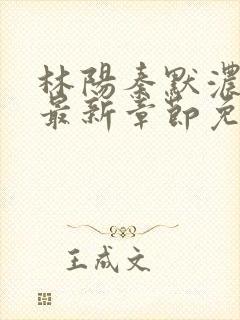 林陽秦默濃
最新章節免
王成文